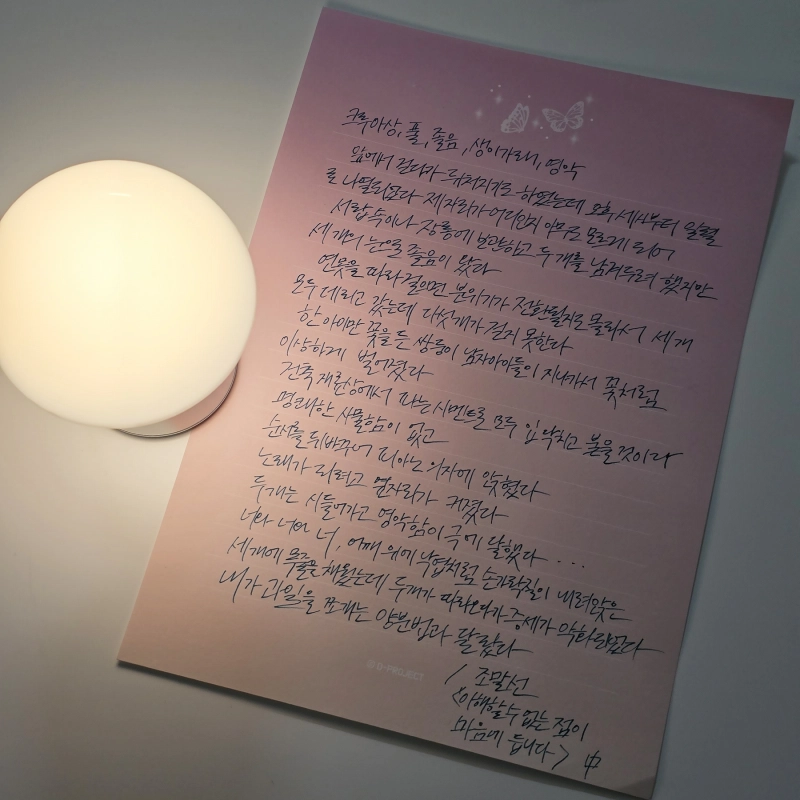 크루아상, 풀, 졸음, 생이가래, 영악
앞에서 걷다가 뒤처지기로 하였는데 오후 세시부터 일렬
로 나열되었다 제자리가 어디인지 아무도 모르게 되어
서랍 속이나 장롱에 보관하고 두 개를 남겨두려 했지만
세 개의 눈으로 졸음이 왔다
연못을 따라 걸으면 분위기가 전환될지도 몰라서 세 개
모두 데리고 갔는데 다섯 개가 걷지 못한다
한 아이만 꽃을 든 쌍둥이 남자아이들이 지나가서 꽃처럼
이상하게 벌어졌다
건축재료상에서 파는 시멘트로 모두 입 닥치고 붙을 것이라
명쾌한 사물함이 없고
순서를 뒤바꾸어 피아노 의자에 앉혔다
노래가 되려고 옆자리가 커졌다
두 개는 시들어가고 영악함이 극에 달했다...
너와 너와 너, 어깨 위에 낙엽처럼 손가락질이 내려앉은
세 개에 목줄을 채웠는데 두 개가 따라오다가 증세가 악화되었다
내가 과일을 쪼개는 양분법과 달랐다
/ 조말선
<이해할 수 없는 점이
마음에 듭니다> 中
D-PROJECT